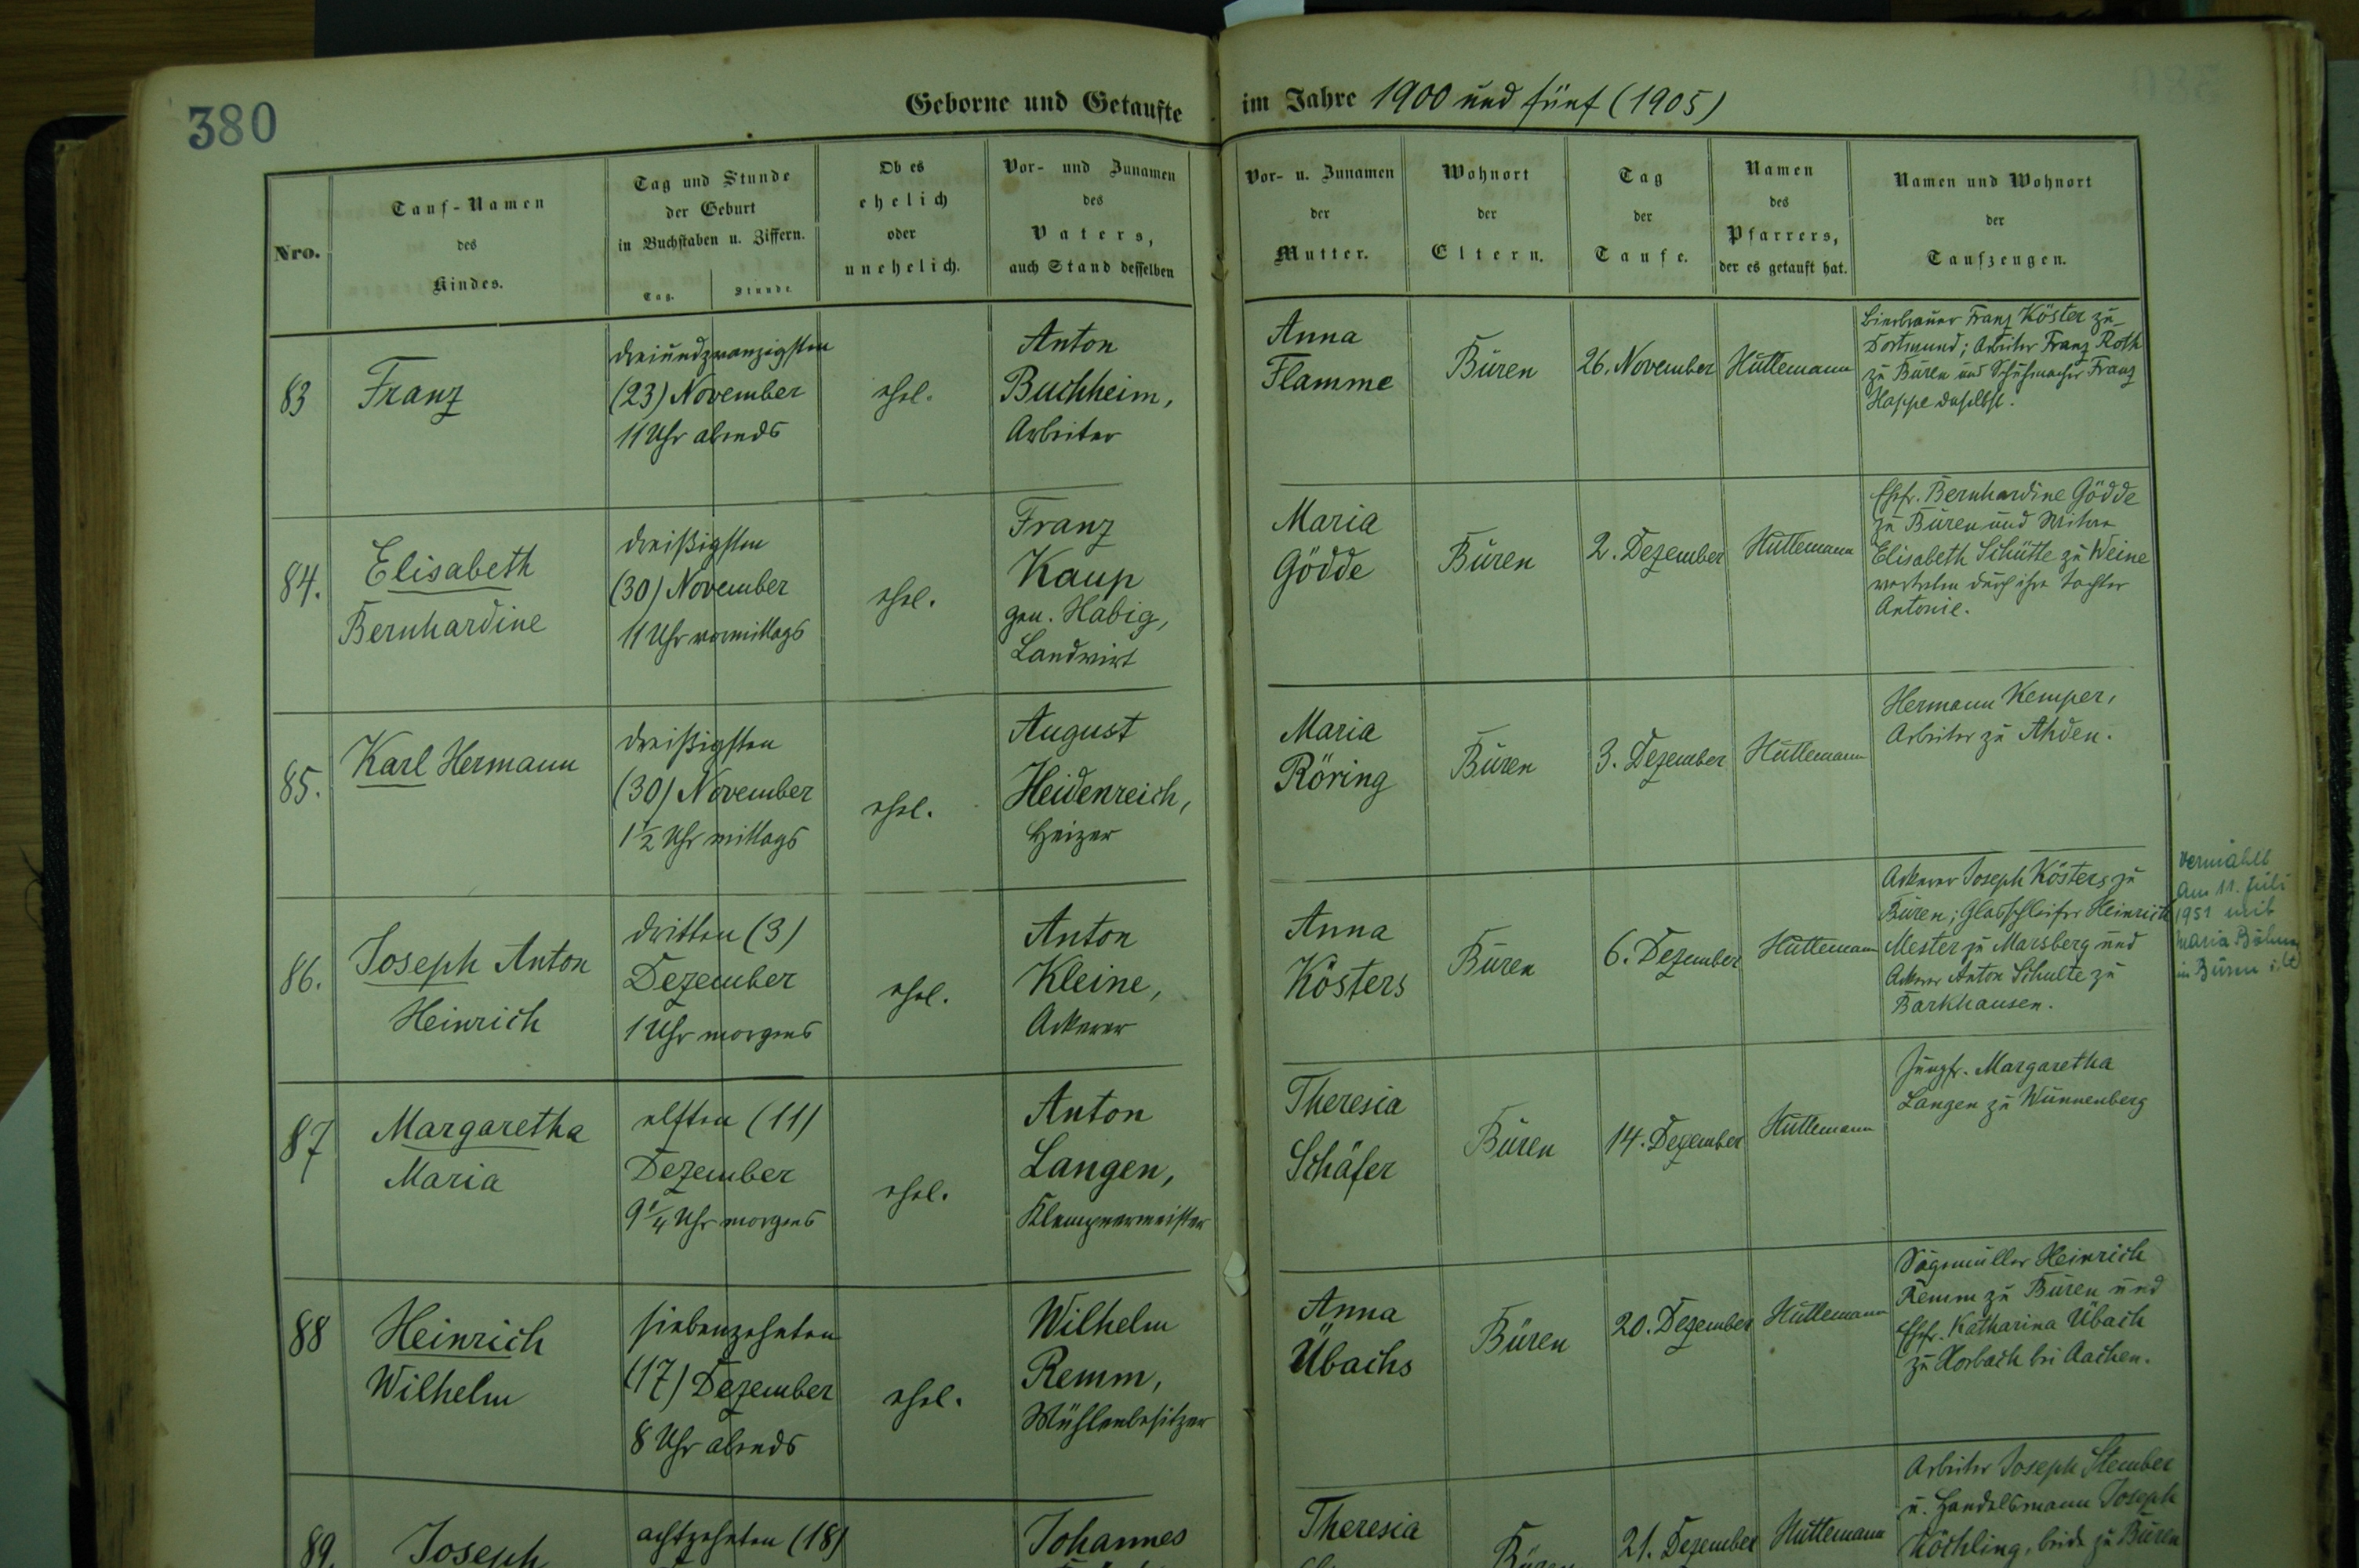 380
Geborne und Getaufte im Jahre 1900 und fünf (1905)
Nro.
Tauf-Namen
des
Kindes.
Tag und Stunde
der Geburt
in Buchstaben u. Ziffern.
Tag.
Stunde.
Ob es
ehelich
oder
unehelich.
Vor- und Zunamen
des
Vaters,
auch Stand desselben
Vor- u. Zunamen
der
Mutter.
Wohnort
der
Eltern.
Tag
der
Taufe.
Namen
des
Pfarrers,
der es getauft hat.
Namen und Wohnort
der
Taufzeugen.
83
Franz
dreiundzwanzigsten
(23) November
11 Uhr abends
ehel.
Anton
Buchheim,
Arbeiter
Anna
Flamme
Büren
26. November
Hüttemann
Bierbrauer Franz Köster zu
Dortmund; Arbeiter Franz Roth
zu Büren und Schuhmacher Franz
Happe daselbst.
84.
Elisabeth
Bernhardine
dreißigsten
(30) November
11 Uhr vormittags
ehel.
Franz
Kaup
gen. Habig,
Landwirt
Maria
Gödde
Büren
2. Dezember
Hüttemann
Ehfr. Bernhardine Gödde
zu Büren und Witwe
Elisabeth Schütte zu Weine
vertreten durch ihre Tochter
Antonie.
85.
Karl Hermann
dreißigsten
(30) November
1½ Uhr mittags
ehel.
August
Heidenreich,
Heizer
Maria
Röring
Büren
3. Dezember
Hüttemann
Hermann Kemper,
Arbeiter zu Ahden.
86.
Joseph Anton
Heinrich
dritten (3)
Dezember
1 Uhr morgens
ehel.
Anton
Kleine,
Ackerer
Anna
Kösters
Büren
6. Dezember
Hüttemann
Ackerer Joseph Kösters zu
Büren; Glasschleifer Heinrich
Mester zu Marsberg und
Ackerer Anton Schulte zu
Barkhausen.
vermählt
am 11. Juli
1951 mit
Maria Böhme
in Büren
87
Margaretha
Maria
elften (11)
Dezember
9¼ Uhr morgens
ehel.
Anton
Langen,
Klempnermeister
Theresia
Schäfer
Büren
14. Dezember
Hüttemann
Jungfr. Margaretha
Langen zu Wünnenberg
88
Heinrich
Wilhelm
siebenzehnten
(17) Dezember
8 Uhr abends
ehel.
Wilhelm
Remm,
Mühlenbesitzer
Anna
Übachs
Büren
20. Dezember
Hüttemann
Sägemüller Heinrich
Remm zu Büren und
Ehfr. Katharina Übach
zu Horbach bei Aachen.
89.
Joseph
achtzehnten (18)
Johannes
Theresia
Büren
21. Dezember
Hüttemann
Arbeiter Joseph Stember
u. Handelsmann Joseph
Köchling, beide zu Büren